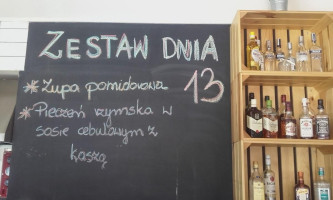 ZESTAW DNIA
* Zupa pomidorowa 13
* Pieczeń rzymska w
sosie cebulowym z
kaszą